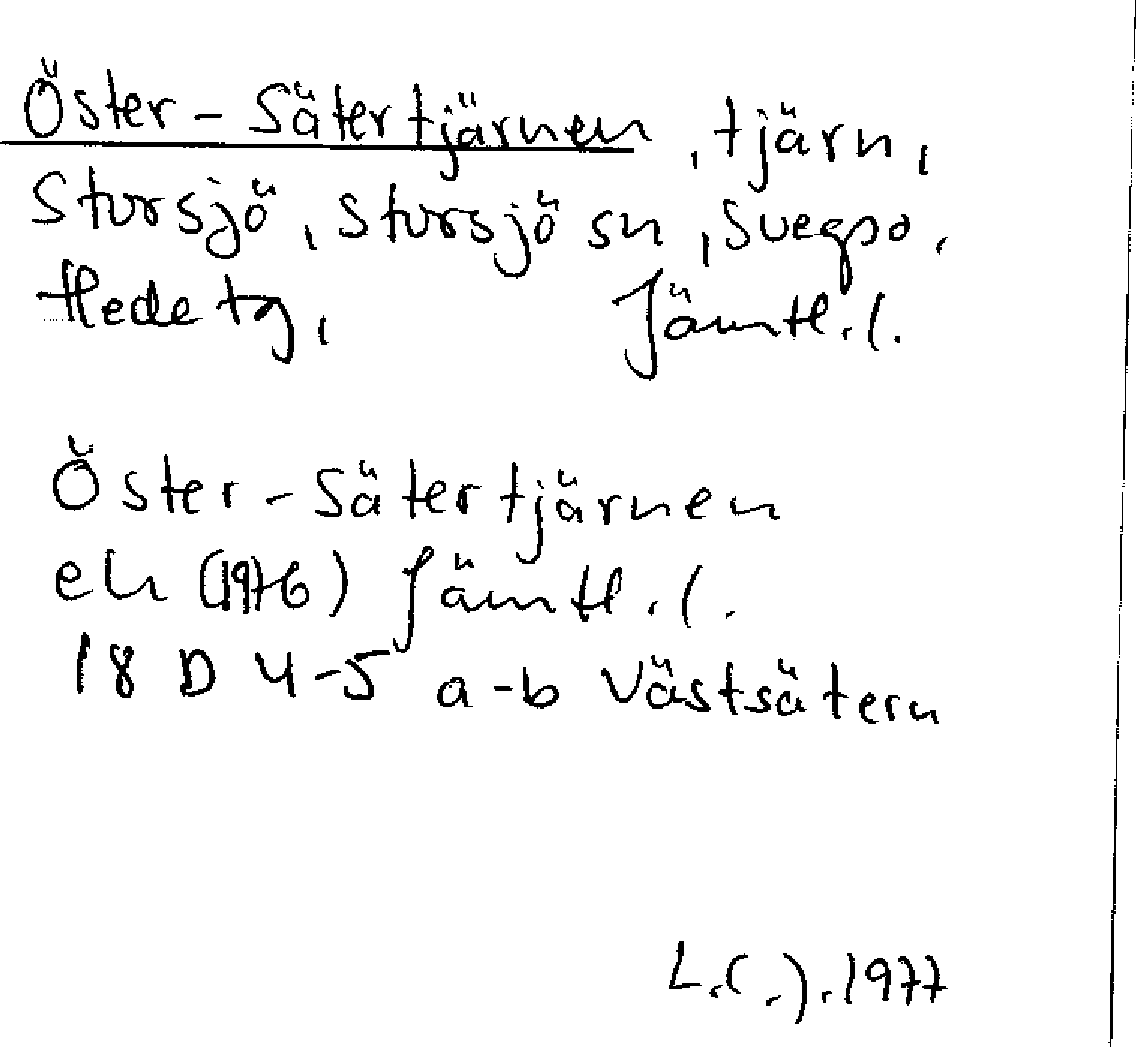 Öster-Sätertjärnen, tjärn,
Storsjö, Storsjö sn, Svegs
Hede tg, Jämtl. l.
Öster-Sätertjärnen
ek (1976) Jämtl. l.
18 D 4-5 a-b Västsätern
1977